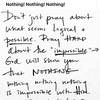 Nothing! Nothing! Nothing!
Don't just pray about
what seems logical &
possible. Pray HARD
about the "impossible" →
God will show you
that NOTHING
nothing nothing nothing
is impossible with Him